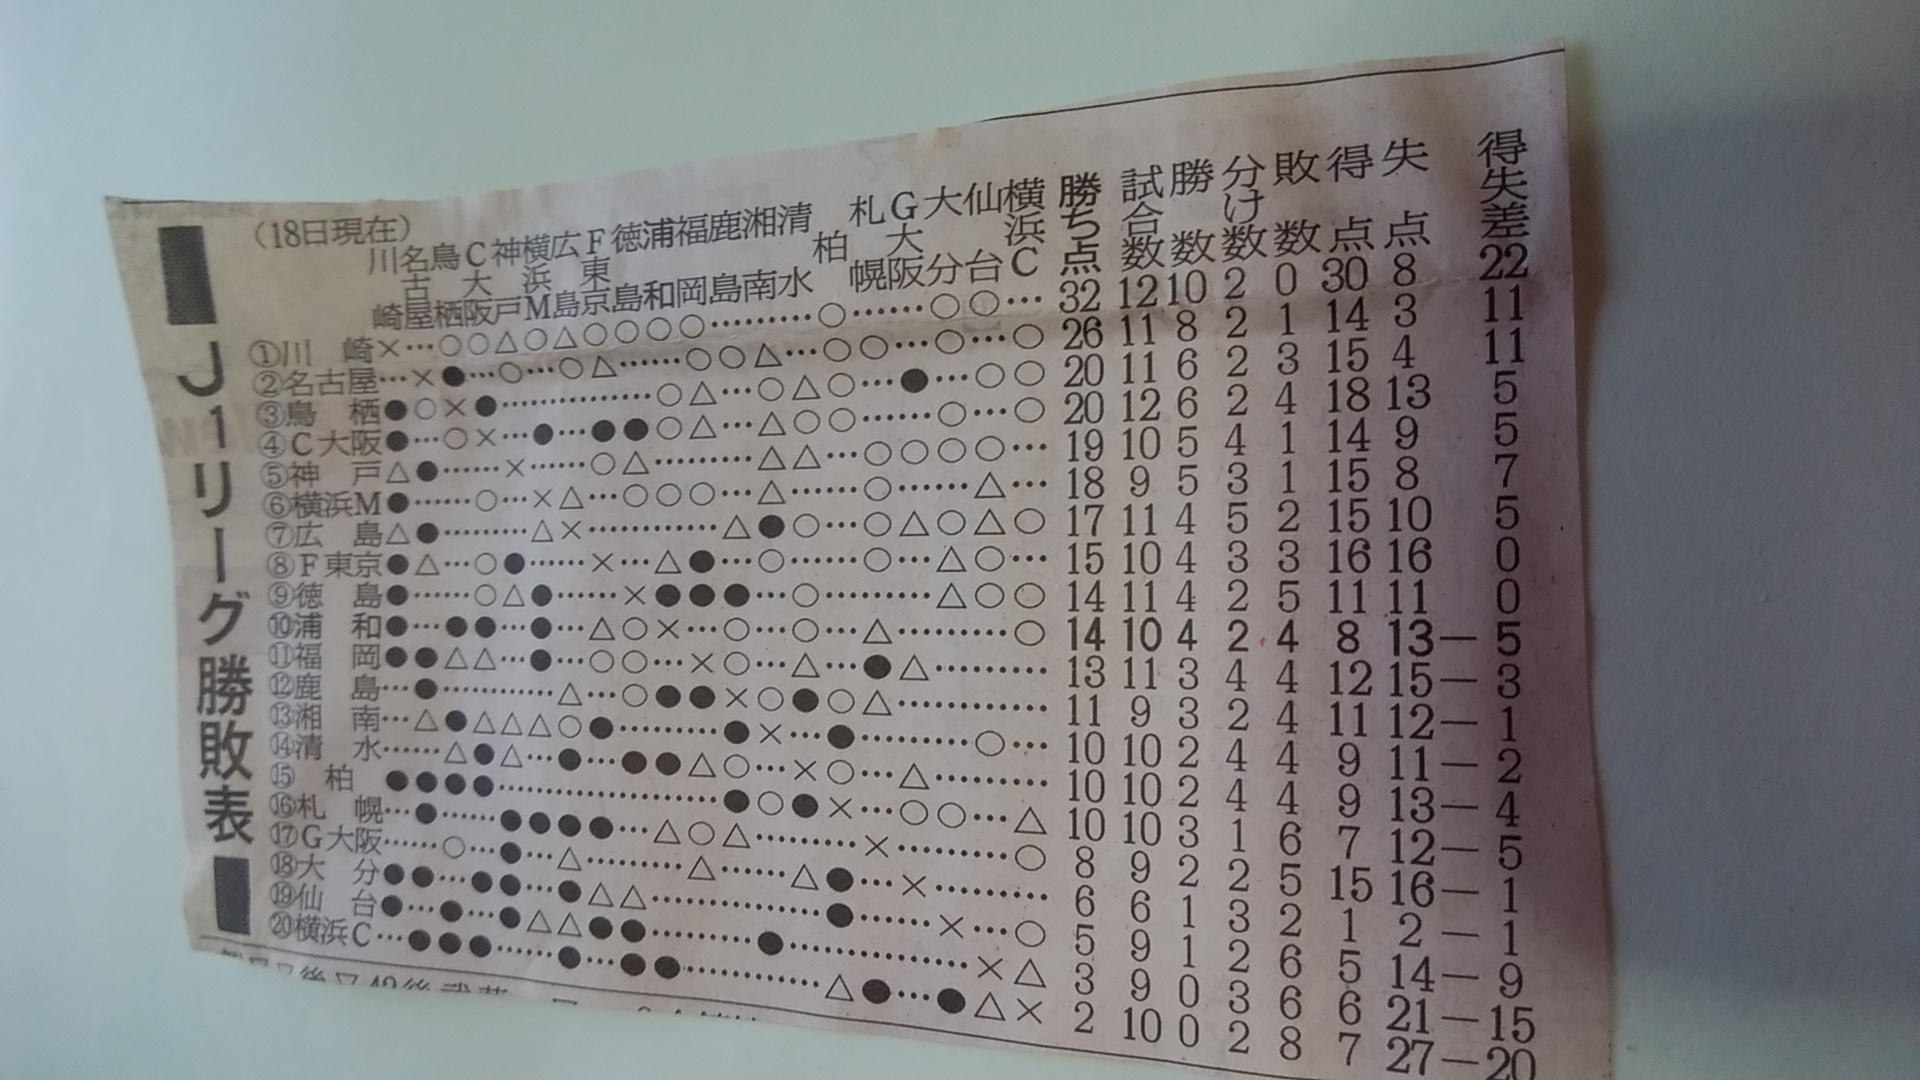 J1リーグ勝敗表
(18日現在)
川崎 名古屋 鳥栖 C大阪 神戸 横浜M 広島 F東京 徳島 浦和 福岡 鹿島 湘南 清水 柏 札幌 G大阪 大分 仙台 横浜C 勝ち点 試合数 勝数 分け数 敗数 得点 失点 得失差
①川崎×…○○△○△○○○○………○……○○… 32 12 10 2 0 30 8 22
②名古屋…×●…○…○△……○○△…○○…○…○ 26 11 8 2 1 14 3 11
③鳥栖●○×●……………○△…○△○…●…○○ 20 11 6 2 3 15 4 11
④C大阪●…○×…●…●●○△…△○○……○…○ 20 12 6 2 4 18 13 5
⑤神戸△●……×……○△………△△…○○○○… 19 10 5 4 1 14 9 5
⑥横浜M●……○…×△…○○○…△……○……△… 18 9 5 3 1 15 8 7
⑦広島△●………△×……………△●○…○△○△○ 17 11 4 5 2 15 10 5
⑧F東京●△…○●……×…△●…○……○…△○… 15 10 4 3 3 16 16 0
⑨徳島●……○△●……×●●●…○………△○○ 14 11 4 2 5 11 11 0
⑩浦和●…●●…●…△○×…○…○…△…………○ 14 10 4 2 4 8 13 —5
⑪福岡●●△△…●…○○…×○…△…●△………… 13 11 3 4 4 12 15 —3
⑫鹿島…●…………△…○●●×○●○△………… 11 9 3 2 4 11 12 —1
⑬湘南…△●△△△○●………●×…●………○… 10 10 2 4 4 9 11 —2
⑭清水……△●△…●…●●△○…×○…△………… 10 10 2 4 4 9 13 —4
⑮柏●●●●……………………●○●×…○○…△ 10 10 3 1 6 7 12 —5
⑯札幌…●……●●●●…△○△………×………○ 8 9 2 2 5 15 16 —1
⑰G大阪……○…●…△………△……△●…×……… 6 6 1 3 2 1 2 —1
⑱大分●●…●●…●△△………………●……×…○ 5 9 1 2 6 5 14 —9
⑲仙台●…●…●△△●●………●………………×△ 3 9 0 3 6 6 21 —15
⑳横浜C…●●●……●…●●…………△●…●△× 2 10 0 2 8 7 27 —20